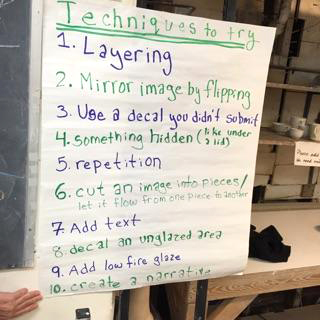 Techniques to try
1. Layering
2. Mirror image by flipping
3. Use a decal you didn't submit
4. something hidden (like under a lid)
5. repetition
6. cut an image into pieces/
let it flow from one piece to another
7. Add text
8. decal an unglazed area
9. Add low fire glaze
10. create a narrative
Please add